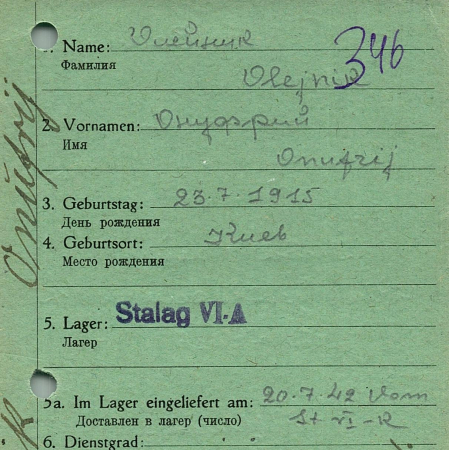 1. Name: Олейник
Фамилия
Olejnik
346
2. Vornamen: Онуфрий
Имя
Onufrij
3. Geburtstag: 23.7.1915
День рождения
4. Geburtsort: Киев
Место рождения
5. Lager: Stalag VI-A
Лагерь
5a. Im Lager eingeliefert am: 20.7.42 Vom
Доставлен в лагерь (число) St VI-K
6. Dienstgrad:
Onufrij